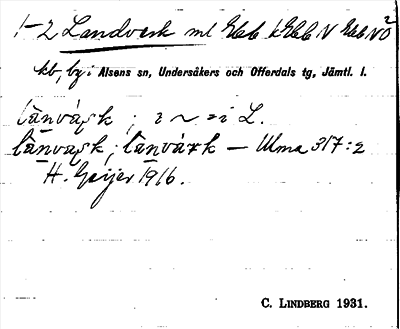 1-2 Landverk ml Ebb kEbb N Ebb NO 2
kb, by i Alsens sn, Undersåkers och Offerdals tg, Jämtl. l.
lànvàrk ; i ~ = i L.
lànvàrk, lànvàrk — Ulma 317:2
H. Geijer 1916.
C. LINDBERG 1931.